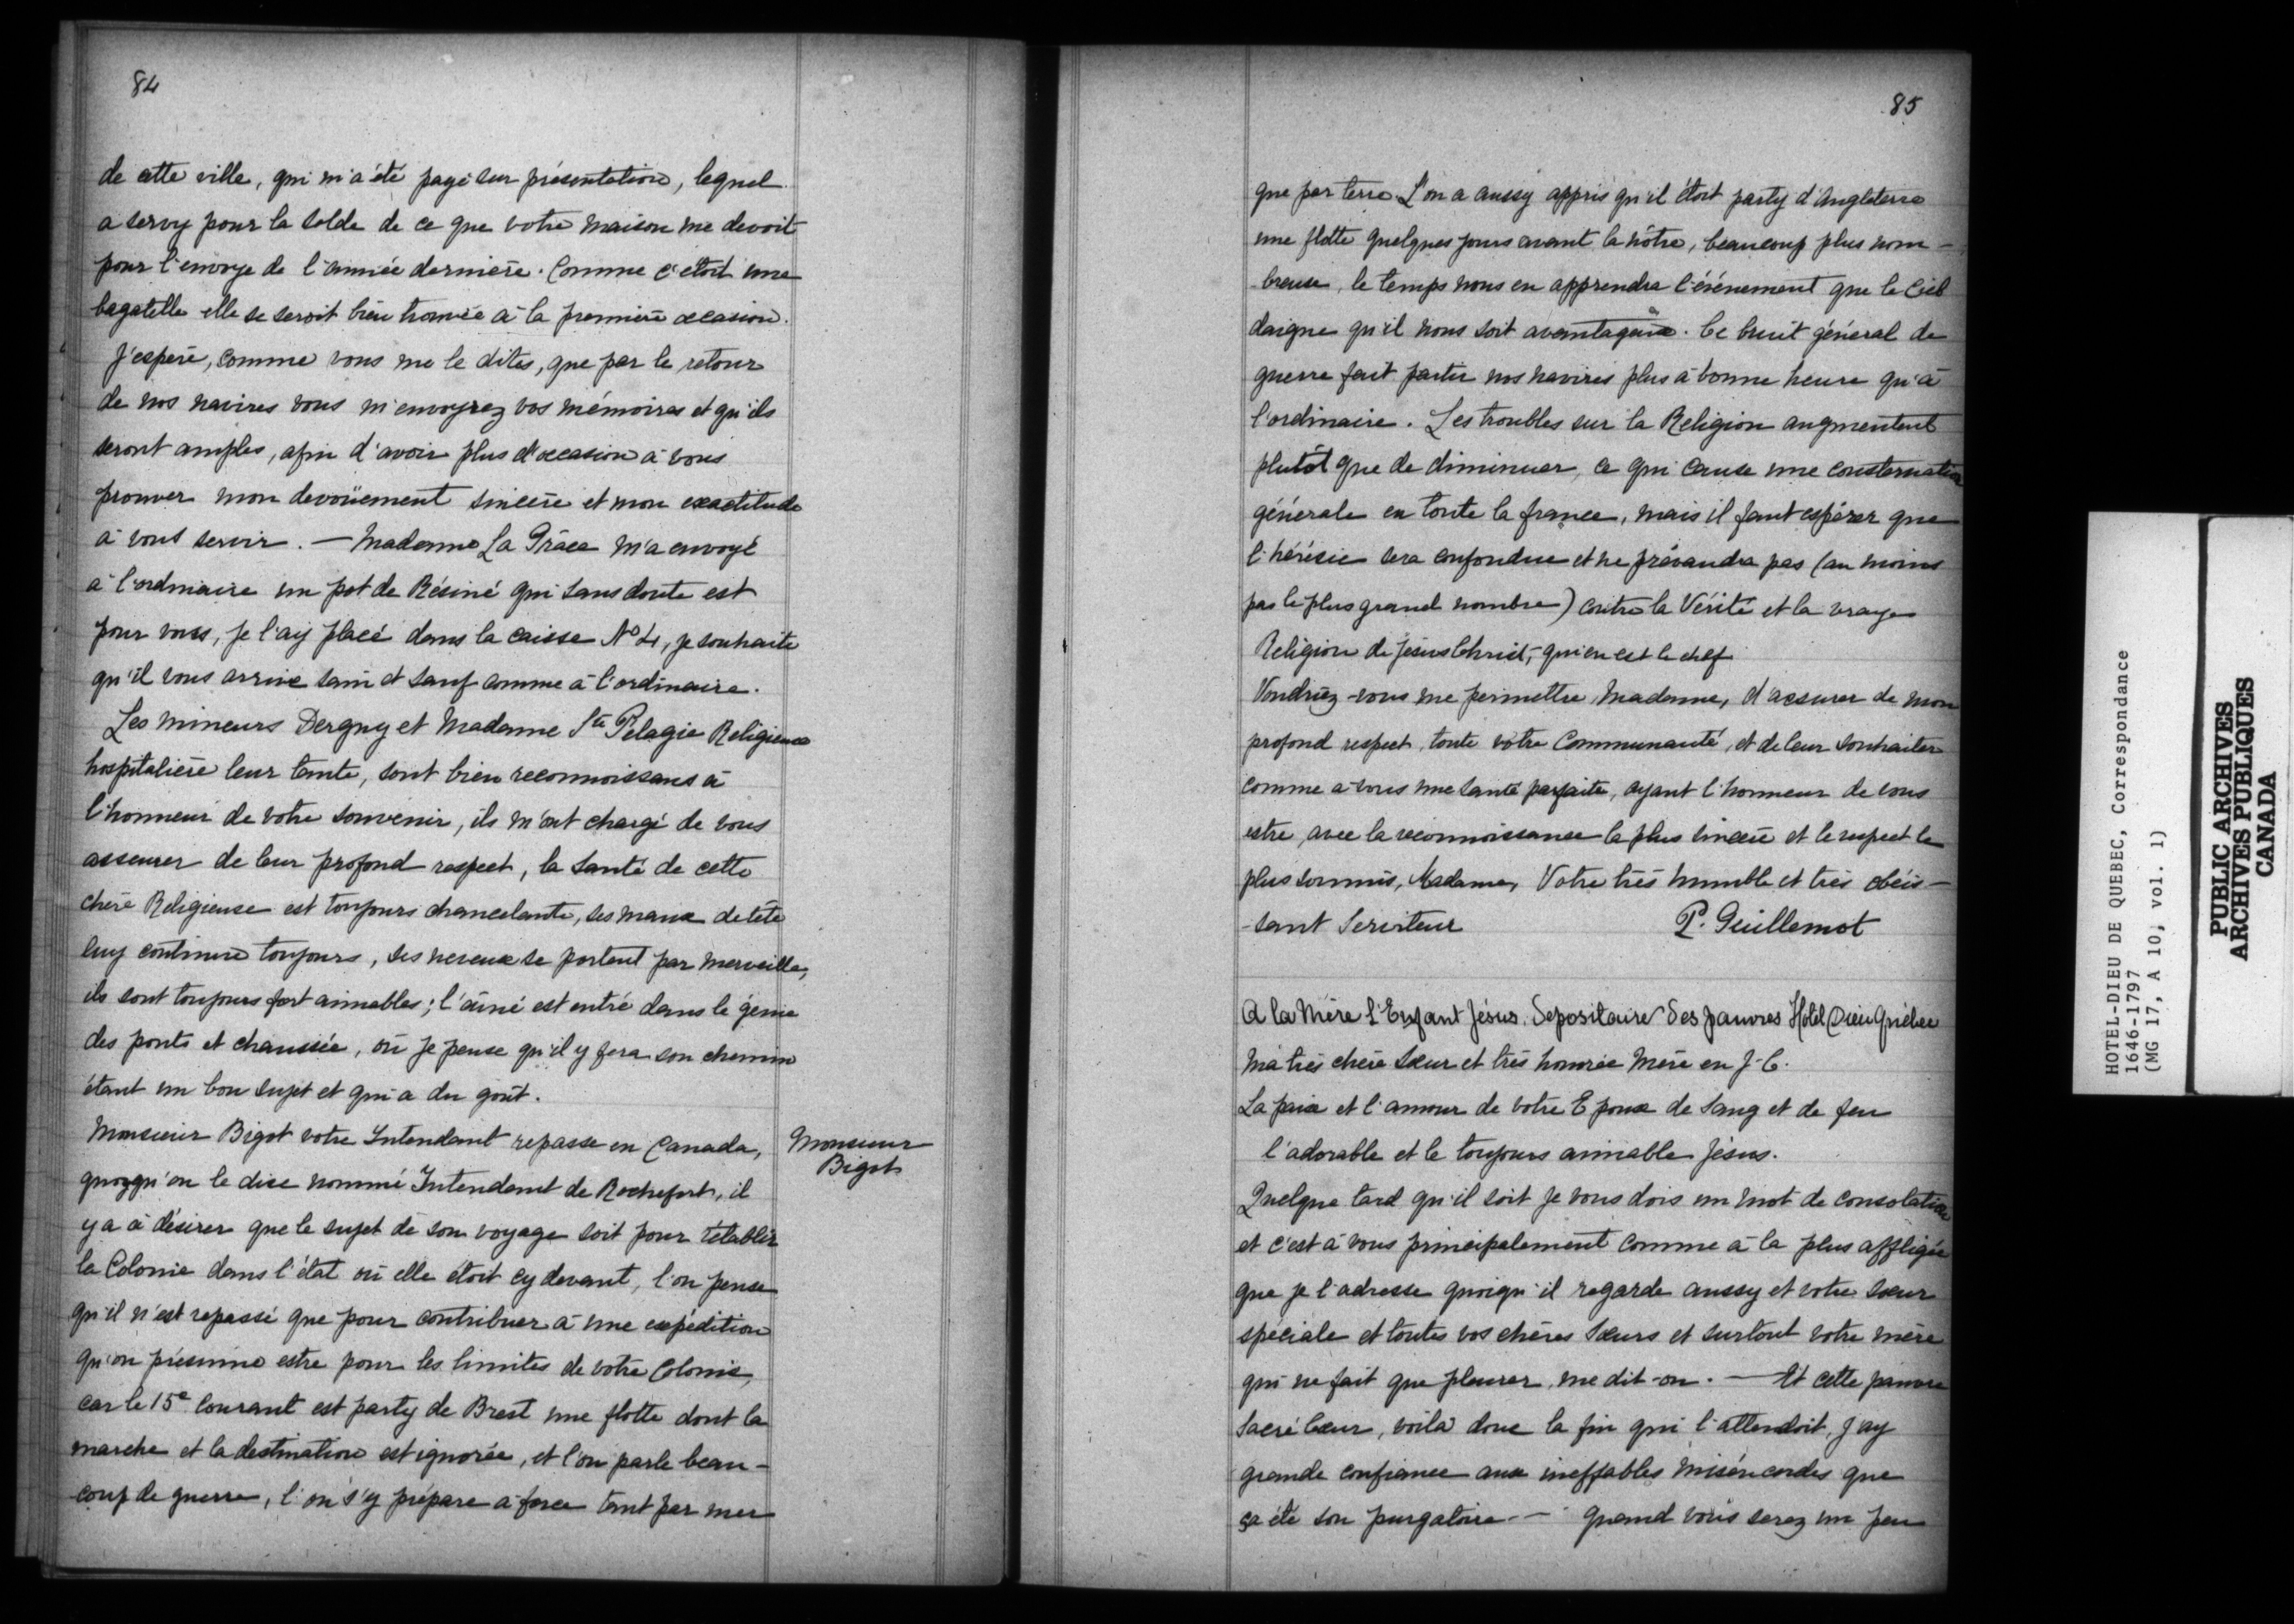 84
de cette ville, qui m'a été payé sur présentation, lequel
a servy pour la solde de ce que votre maison me devoit
pour l'envoye de l'année dernière. Comme c'étoit une
bagatelle elle se seroit bien trouvée à la première occasion.
J'espère, comme vous me le dites, que par le retour
de nos navires vous m'envoyrez vos mémoires et qu'ils
seront amples, afin d'avoir plus d'occasion à vous
prouver mon devoüement sincère et mon exactitude
à vous servir. — Madame La Grâce m'a envoyé
à l'ordinaire un pot de Résiné qui sans doute est
pour vous, je l'aij placé dans la caisse No 4, je souhaite
qu'il vous arrive sain et sauf comme à l'ordinaire.
Les mineurs Dergny et Madame Ste Pelagie Religieuse
hospitalière leur tante, sont bien reconnoissans à
l'honneur de votre souvenir, ils m'ont chargé de vous
asseurer de leur profond respect, la santé de cette
chère Religieuse est toujours chancelante, ses maux de tête
luy continue toujours, ses neveux se portent par merveille,
ils sont toujours fort aimables; l'aîné est entré dans le génie
des ponts et chaussée, où je pense qu'il y fera son chemin
étant un bon sujet et qui a du goût.
Monsieur Bigot votre Intendant repasse en Canada,
quoyqu'on le dise nommé Intendant de Rochefort, il
y a à désirer que le sujet de son voyage soit pour rétablir
la Colonie dans l'état où elle étoit cy devant, l'on pense
qu'il n'est repassé que pour contribuer à une expédition
qu'on présume estre pour les limites de votre Colonie,
car le 15e courant est party de Brest une flotte dont la
marche et la destination est ignorée, et l'on parle beau-
coup de guerre, l'on s'y prépare à force tant par mer
Monsieur
Bigot
85
que par terre L'on a aussy appris qu'il étoit party d'Angleterre
une flotte quelques jours avant la nôtre, beaucoup plus nom-
breuse, le temps nous en apprendra l'événement que le Ciel
daigne qu'il nous soit avantageux. Ce bruit général de
guerre fait partir nos navires plus à bonne heure qu'à
l'ordinaire. Les troubles sur la Religion augmentent
plutôt que de diminuer, ce qui cause une consternation
générale en toute la france, mais il faut espérer que
l'hérésie sera confondue et ne prévaudra pas (au moins
pas le plus grand nombre) contre la Vérité et la vraye
Religion de Jésus Christ, qui en est le chef.
Voudriez-vous me permettre, Madame, d'assurer de mon
profond respect, toute votre Communauté, et de leur souhaiter
comme à vous une santé parfaite, ayant l'honneur de vous
estre, avec la reconnoissance la plus sincère et le respect le
plus soumis, Madame, Votre très humble et très obéis-
-sant Serviteur P. Guillemot
A la Mère L'Enfant Jésus. Depositaire Des pauvres Hôtel Dieu Québec
Ma très chère Sœur et très honorée Mère en J-C.
La paix et l'amour de votre Epoux de Sang et de feu
l'adorable et le toujours aimable Jésus.
Quelque tard qu'il soit je vous dois un mot de consolation
et c'est à vous principalement comme à la plus affligée
que je l'adresse quoiqu'il regarde aussy et votre sœur
spéciale et toutes vos chères Sœurs et surtout votre mère
qui ne fait que pleurer, me dit-on. — Et cette pauvre
Sacré Cœur, voilà donc la fin qui l'attendoit, J'ay
grande confiance aux ineffables miséricordes que
ça été son purgatoire — quand vous serez un peu
HOTEL-DIEU DE QUEBEC, Correspondance
1646-1797
(MG 17, A 10, vol. 1)
PUBLIC ARCHIVES
ARCHIVES PUBLIQUES
CANADA